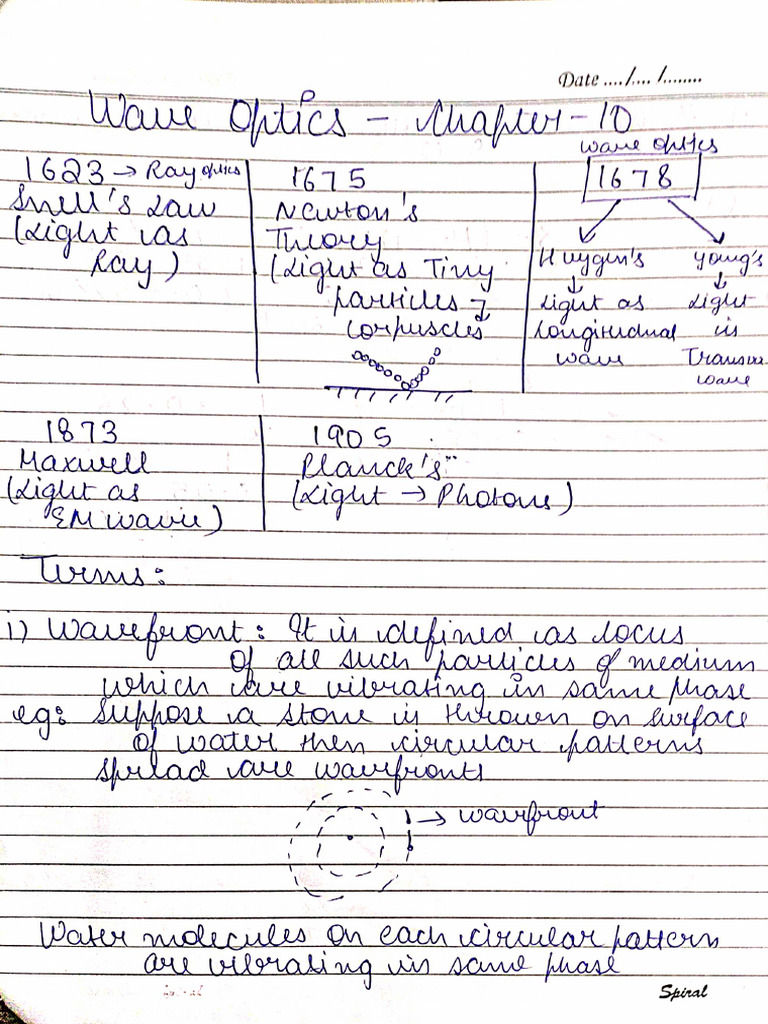 Date ..../..../........
Wave Optics - Chapter-10
1623 → Ray optics
Snell's Law
(Light as
Ray)
1675
Newton's
Theory
(Light as Tiny
particles →
corpuscles
wave optics
1678
Huygen's
Light as
Longitudinal
wave
Young's
Light
is
Transverse
wave
1873
Maxwell
(Light as
EM wave)
1905
Planck's
(Light → Photons)
Terms:
i) Wavefront: It is defined as locus
of all such particles of medium
which are vibrating in same phase
eg: Suppose a stone is thrown on surface
of water then circular patterns
spread are wavefronts
→ wavefront
Water molecules on each circular pattern
are vibrating in same phase
Spiral